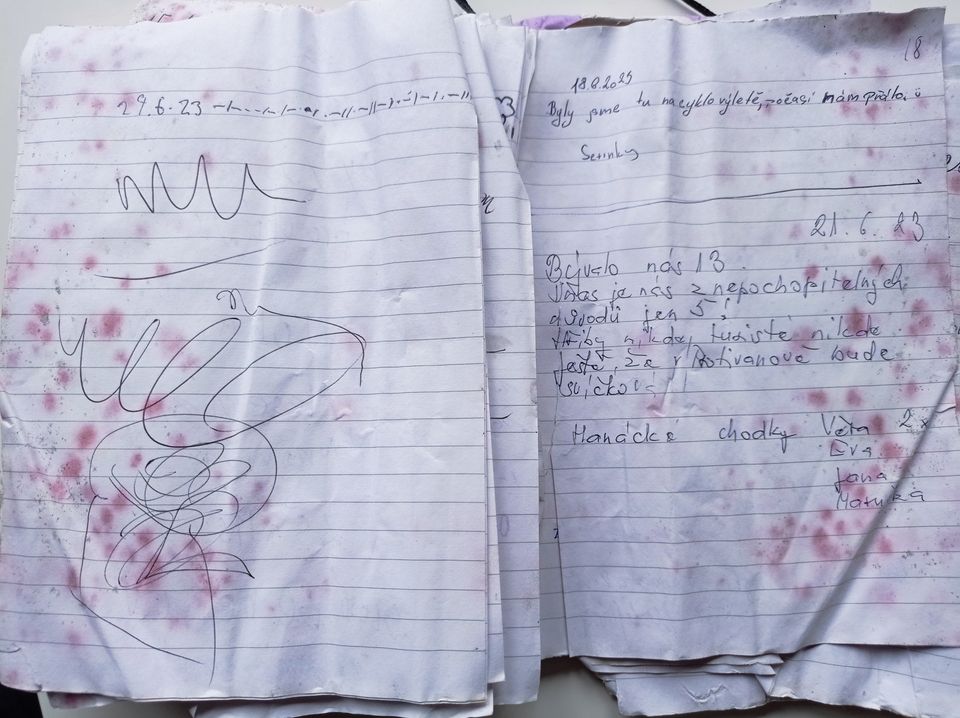 29.6.23
18
18.6.2023
Byly jsme tu na cyklovýletě, počasí nám přálo.
Bývalo nás 13.
Dnes je nás z nepochopitelných
důvodů jen 5!
Hřiby nikde, turisté nikde
Ještě, že v Rotivanově bude
svíčková!
Hanácké chodky Věra 2x
Eva
Jana
Maruška